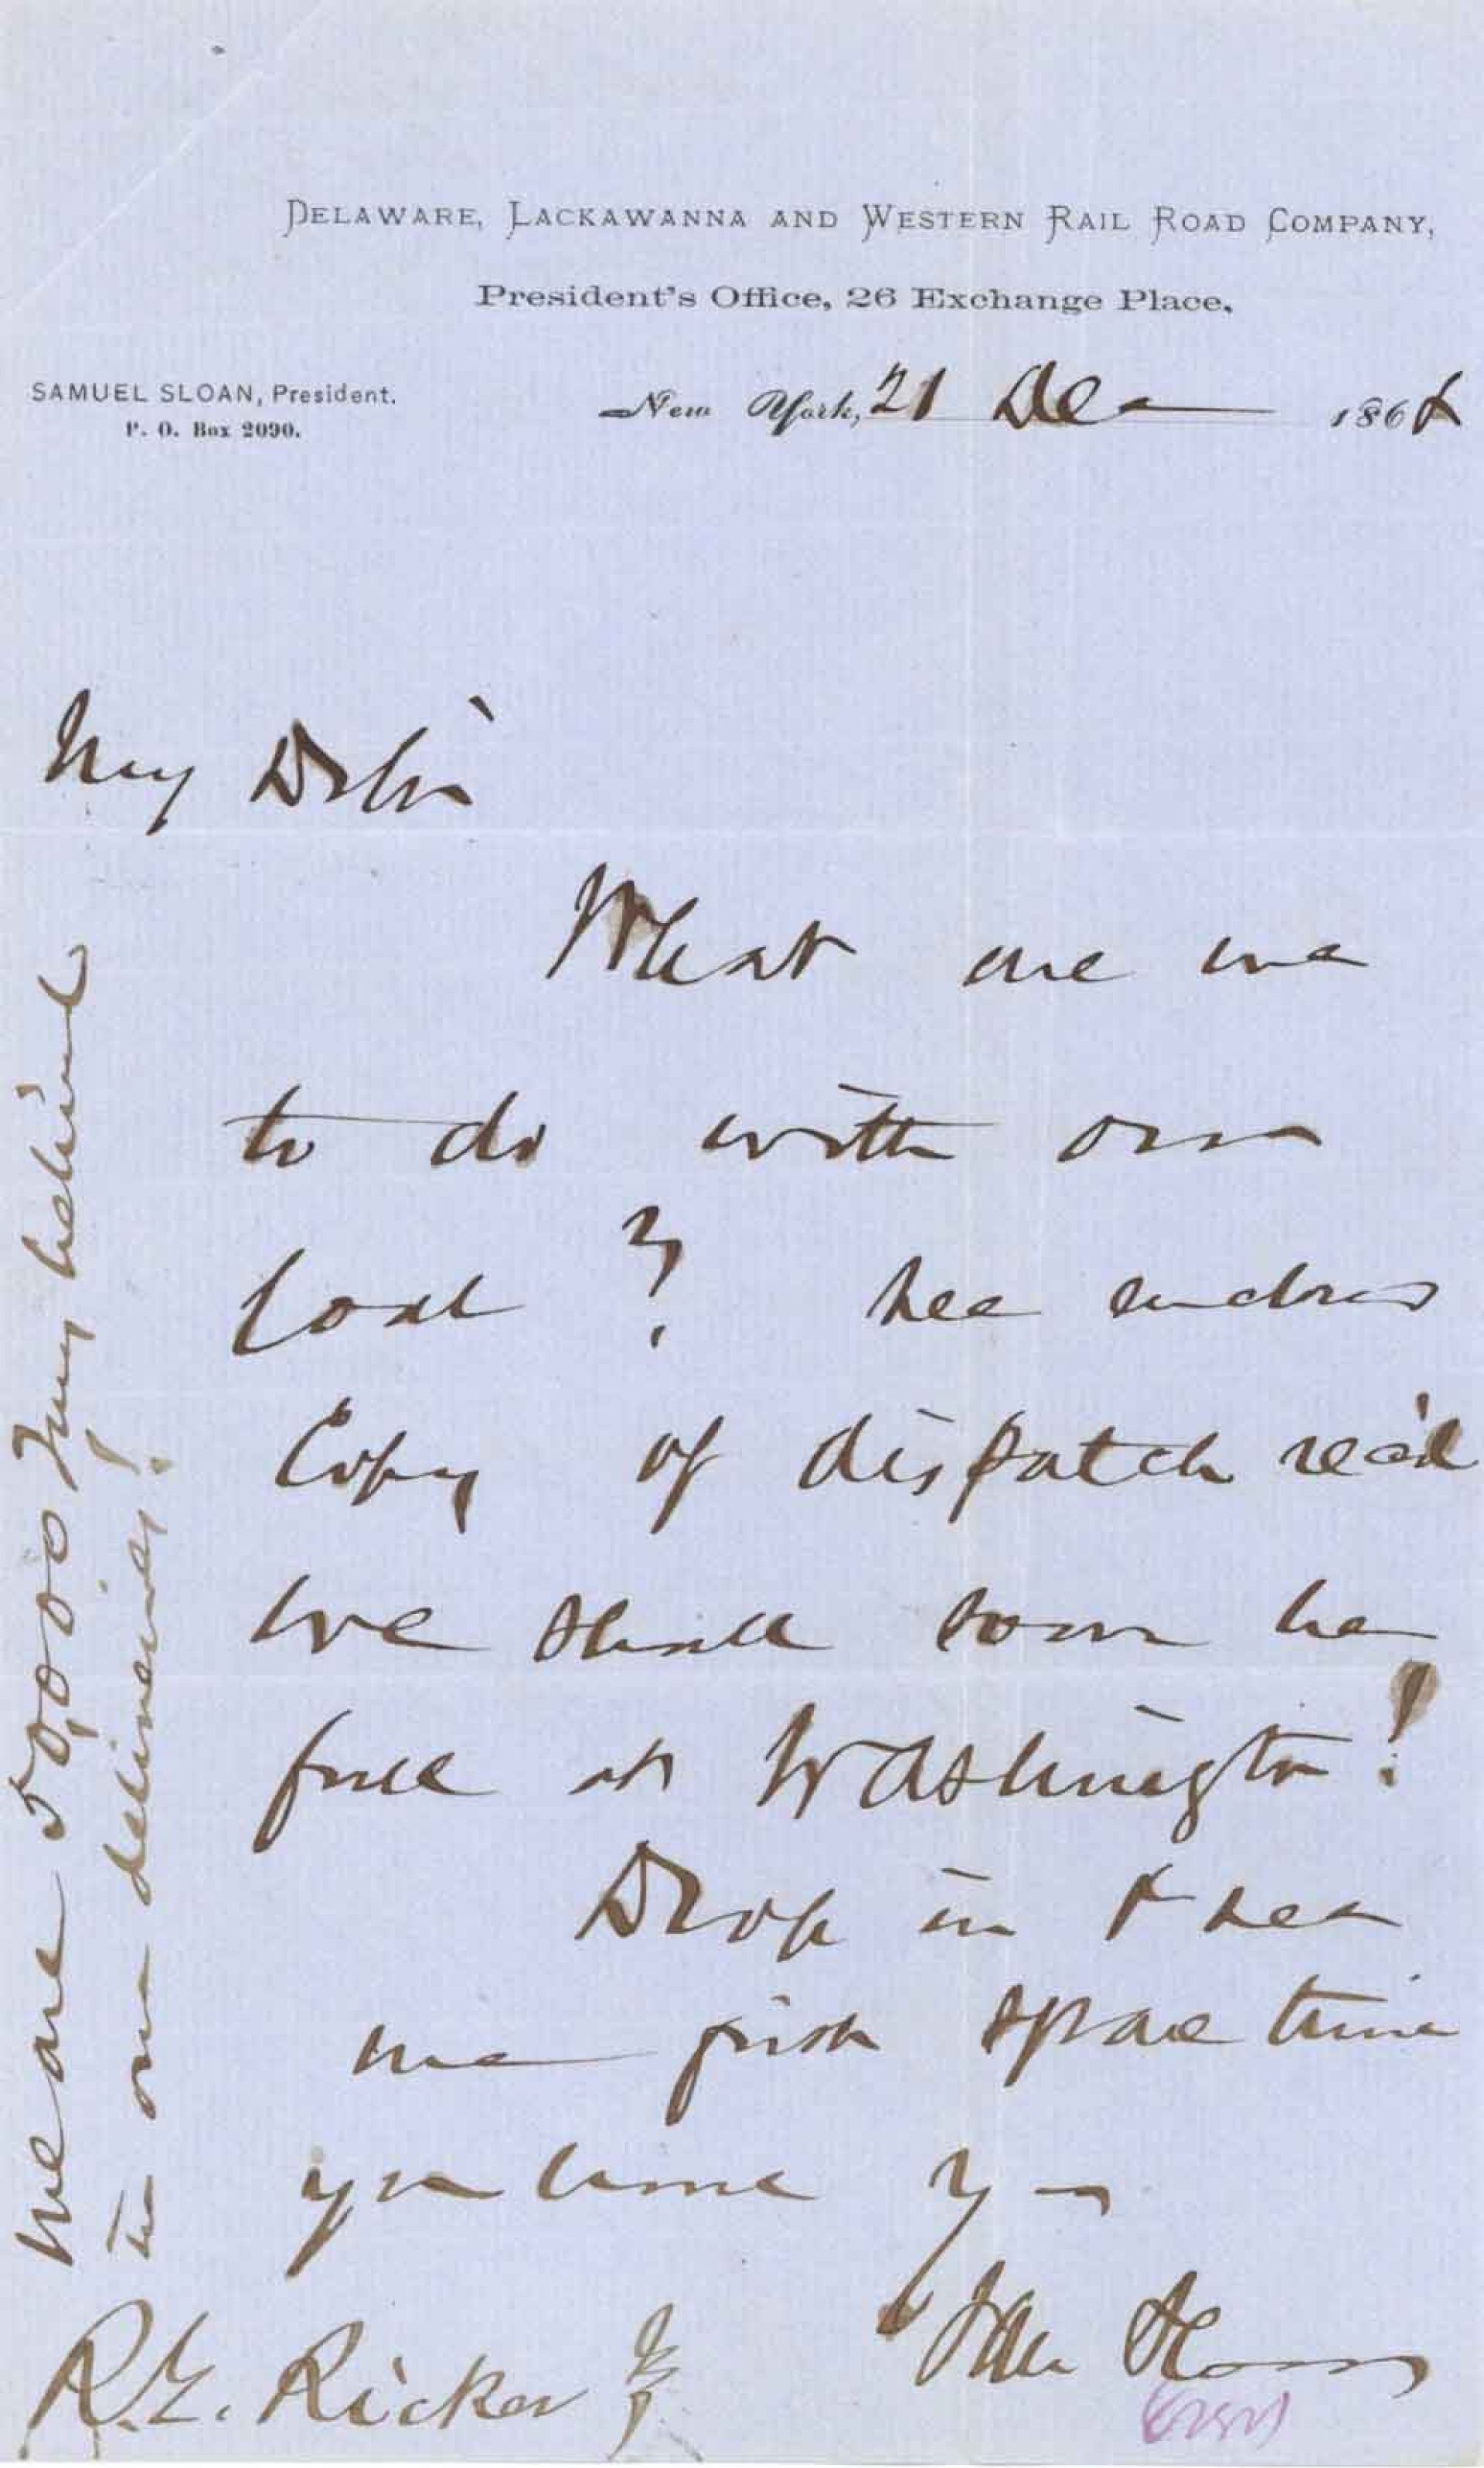 DELAWARE, LACKAWANNA AND WESTERN RAIL ROAD COMPANY,
President's Office, 26 Exchange Place,
SAMUEL SLOAN, President.
P. O. Box 2090.
New York, 21 Dec 1868
My D Sir
What are we
to do with our
Coal? See enclosed
Copy of dispatch rec'd
We shall soon be
full at Washington!
Drop in & see
me first spare time
you have
Sam Sloan
R.E. Ricker
We are 50,000 Tons behind
in our deliveries!